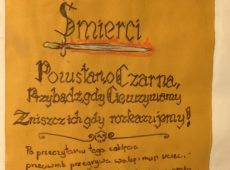 Śmierci
Powstań, o Czarna,
Przybądź gdy Cię wzywamy
Zniszcz ich gdy rozkazujemy!
Po przeczytaniu tego zaklęcia
przeciwnik przegrywa walkę i musi uciec.